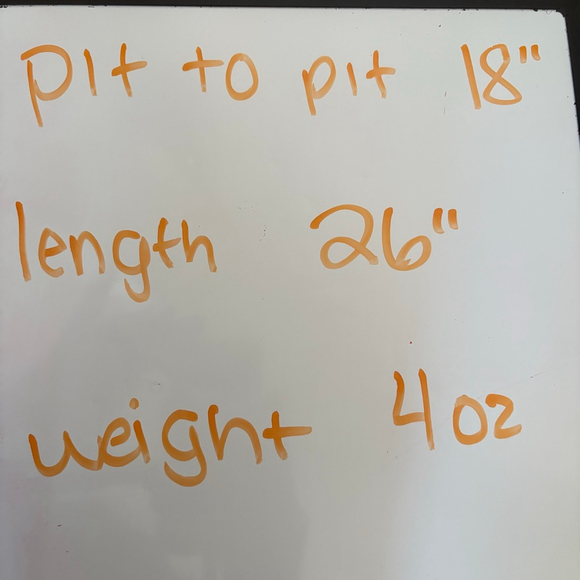 pit to pit 18"
length 26"
weight 4 oz